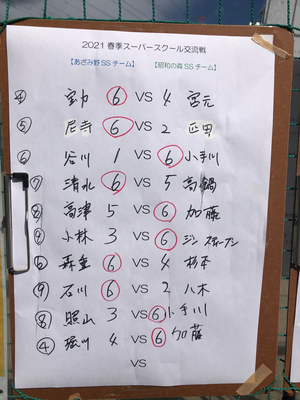 2021 春季スーパースクール交流戦
【あざみ野SSチーム】 【昭和の森SSチーム】
④ 宝力 6 VS 4 宮元
⑤ 尼寺 6 VS 2 正田
⑥ 谷川 1 VS 6 小手川
⑦ 清水 6 VS 5 高鍋
⑧ 高津 5 VS 6 加藤
⑨ 小林 3 VS 6 ジン スティーブン
⑥ 森重 6 VS 4 杉本
⑨ 石川 6 VS 2 八木
⑧ 照山 3 VS 6 小手川
④ 堀川 4 VS 6 加藤
VS